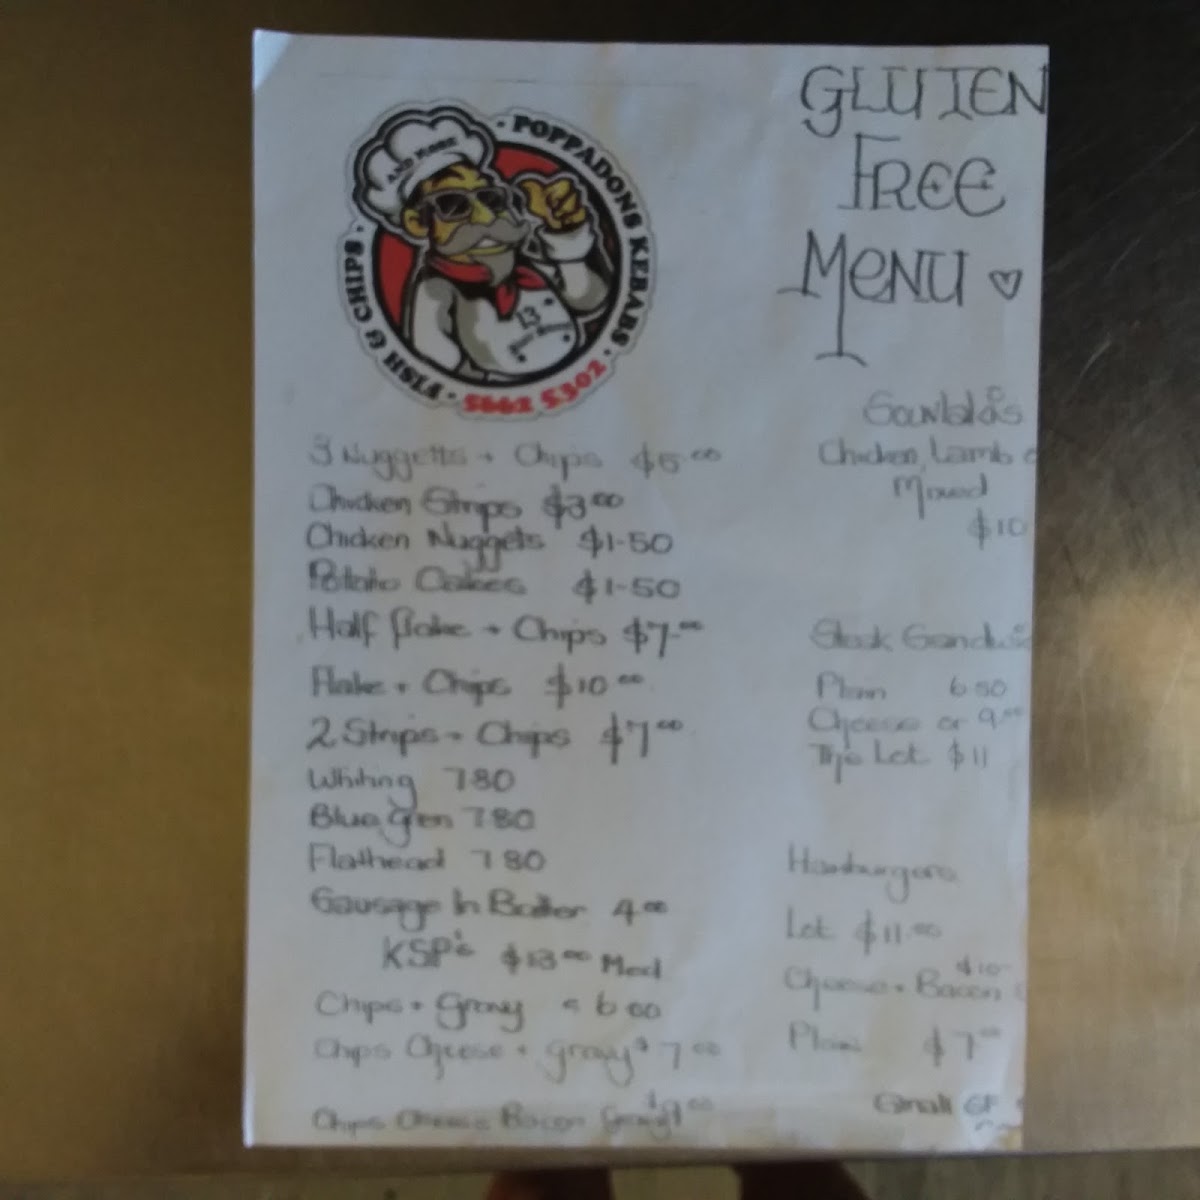 AND MORE
· POPPADONS KEBABS ·
FISH & CHIPS ·
5662 5302
13
GLUTEN
FREE
MENU ♡
3 Nuggetts + Chips $5.00
Chicken Strips $3.00
Chicken Nuggets $1-50
Potato Cakes $1-50
Half flake + Chips $7.00
Flake + Chips $10.00
2 Strips + Chips $7.00
Whiting 7 80
Blue Gren 7 80
Flathead 7 80
Sausage In Batter 4.00
KSP's $13.00 Med
Chips + Gravy 6 00
Chips Cheese + gravy $7.00
Chips Cheese Bacon Gravy
Souvlakis
Chicken, Lamb o
Mixed
$10
Steak
Plain 6 50
Cheese or 9.00
The Lot $11
Hamburgers
Lot $11.00
$10-
Cheese + Bacon
Plain $7.00
Small GF